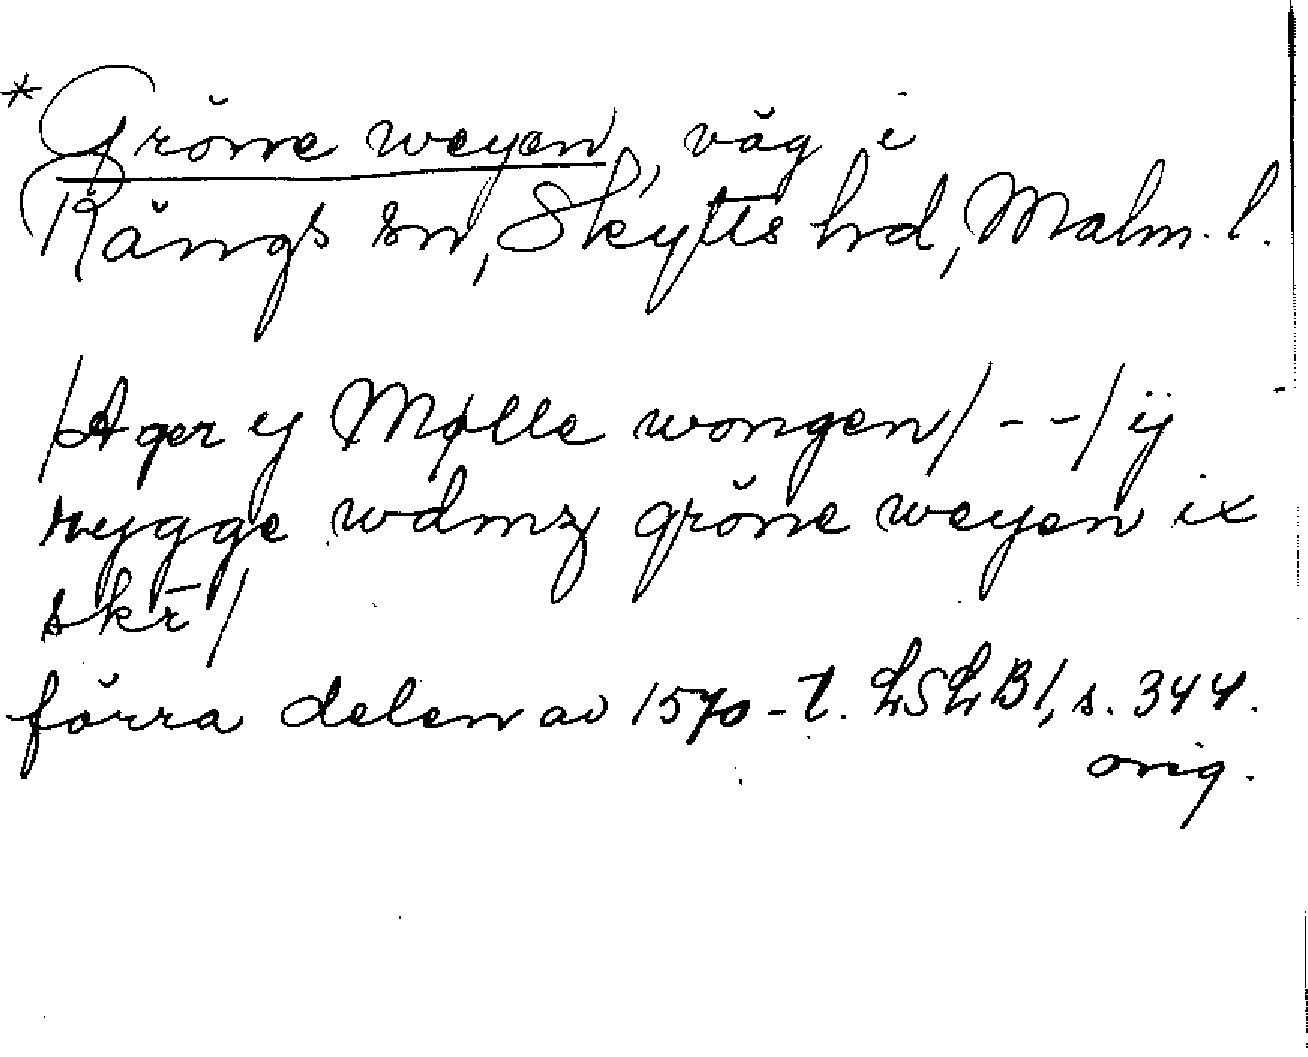 *Gröne weyen, väg i
Rängs sn, Skytts hd, Malm. l.
/Ager y Mølle wongen/ - - / ij
rygge wdmz gröne weyen ix
skr̄/
förra delen av 1570-t. LSLB1, s. 344.
orig.